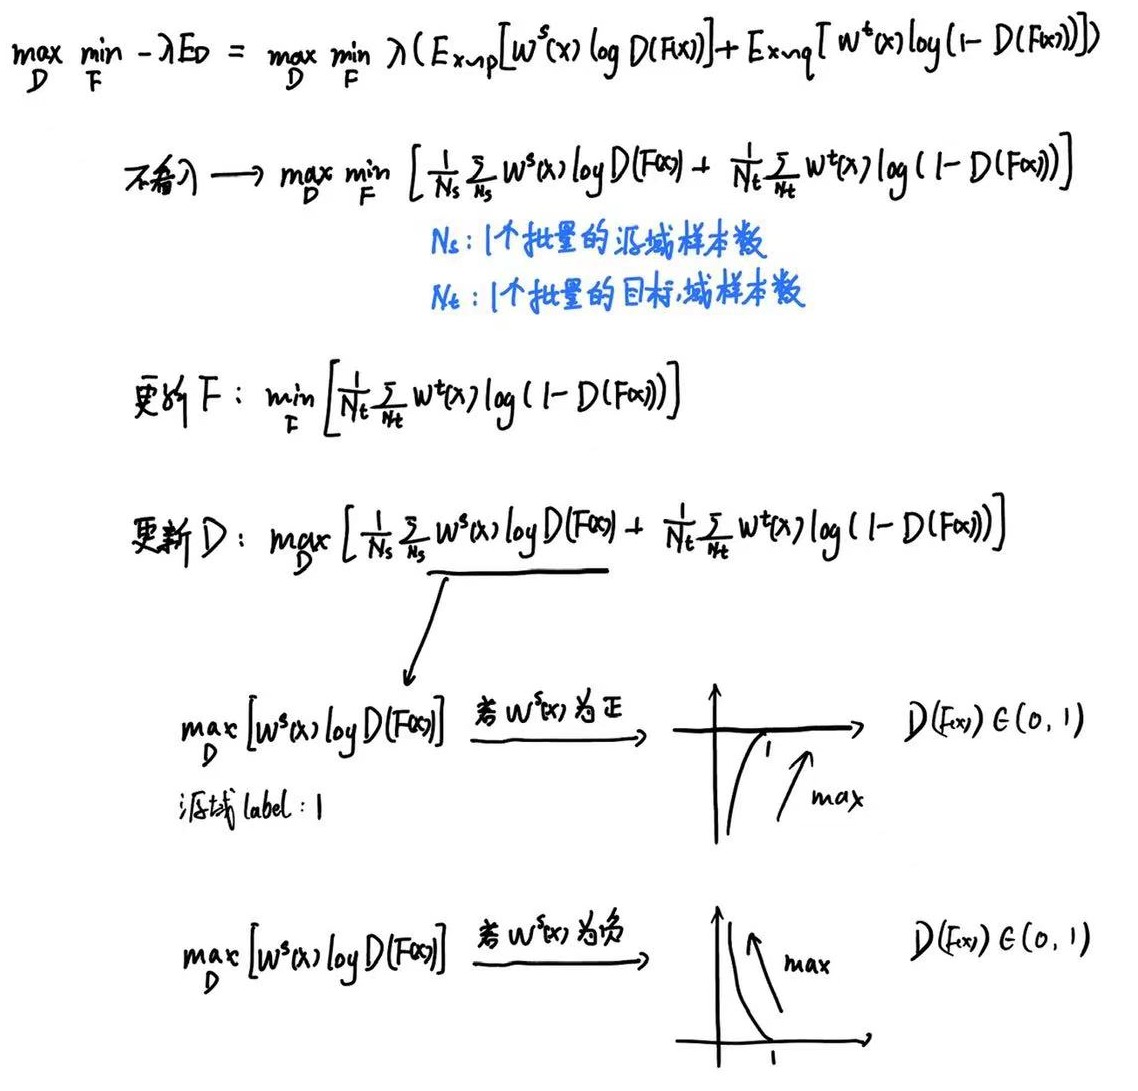 max_D min_F -λE_D = max_D min_F λ(E_{x~p}[w^s(x) log D(F(x))] + E_{x~q}[w^t(x) log(1-D(F(x)))])
不看λ → max_D min_F [1/N_s Σ_{N_s} w^s(x) log D(F(x)) + 1/N_t Σ_{N_t} w^t(x) log(1-D(F(x)))]
N_s: 1个批量的源域样本数
N_t: 1个批量的目标域样本数
更新F: min_F [1/N_t Σ_{N_t} w^t(x) log(1-D(F(x)))]
更新D: max_D [1/N_s Σ_{N_s} w^s(x) log D(F(x)) + 1/N_t Σ_{N_t} w^t(x) log(1-D(F(x)))]
max_D [w^s(x) log D(F(x))] 若w^s(x)为正 1 max D(F(x))∈(0,1)
源域label: 1
max_D [w^s(x) log D(F(x))] 若w^s(x)为负 max 1 D(F(x))∈(0,1)